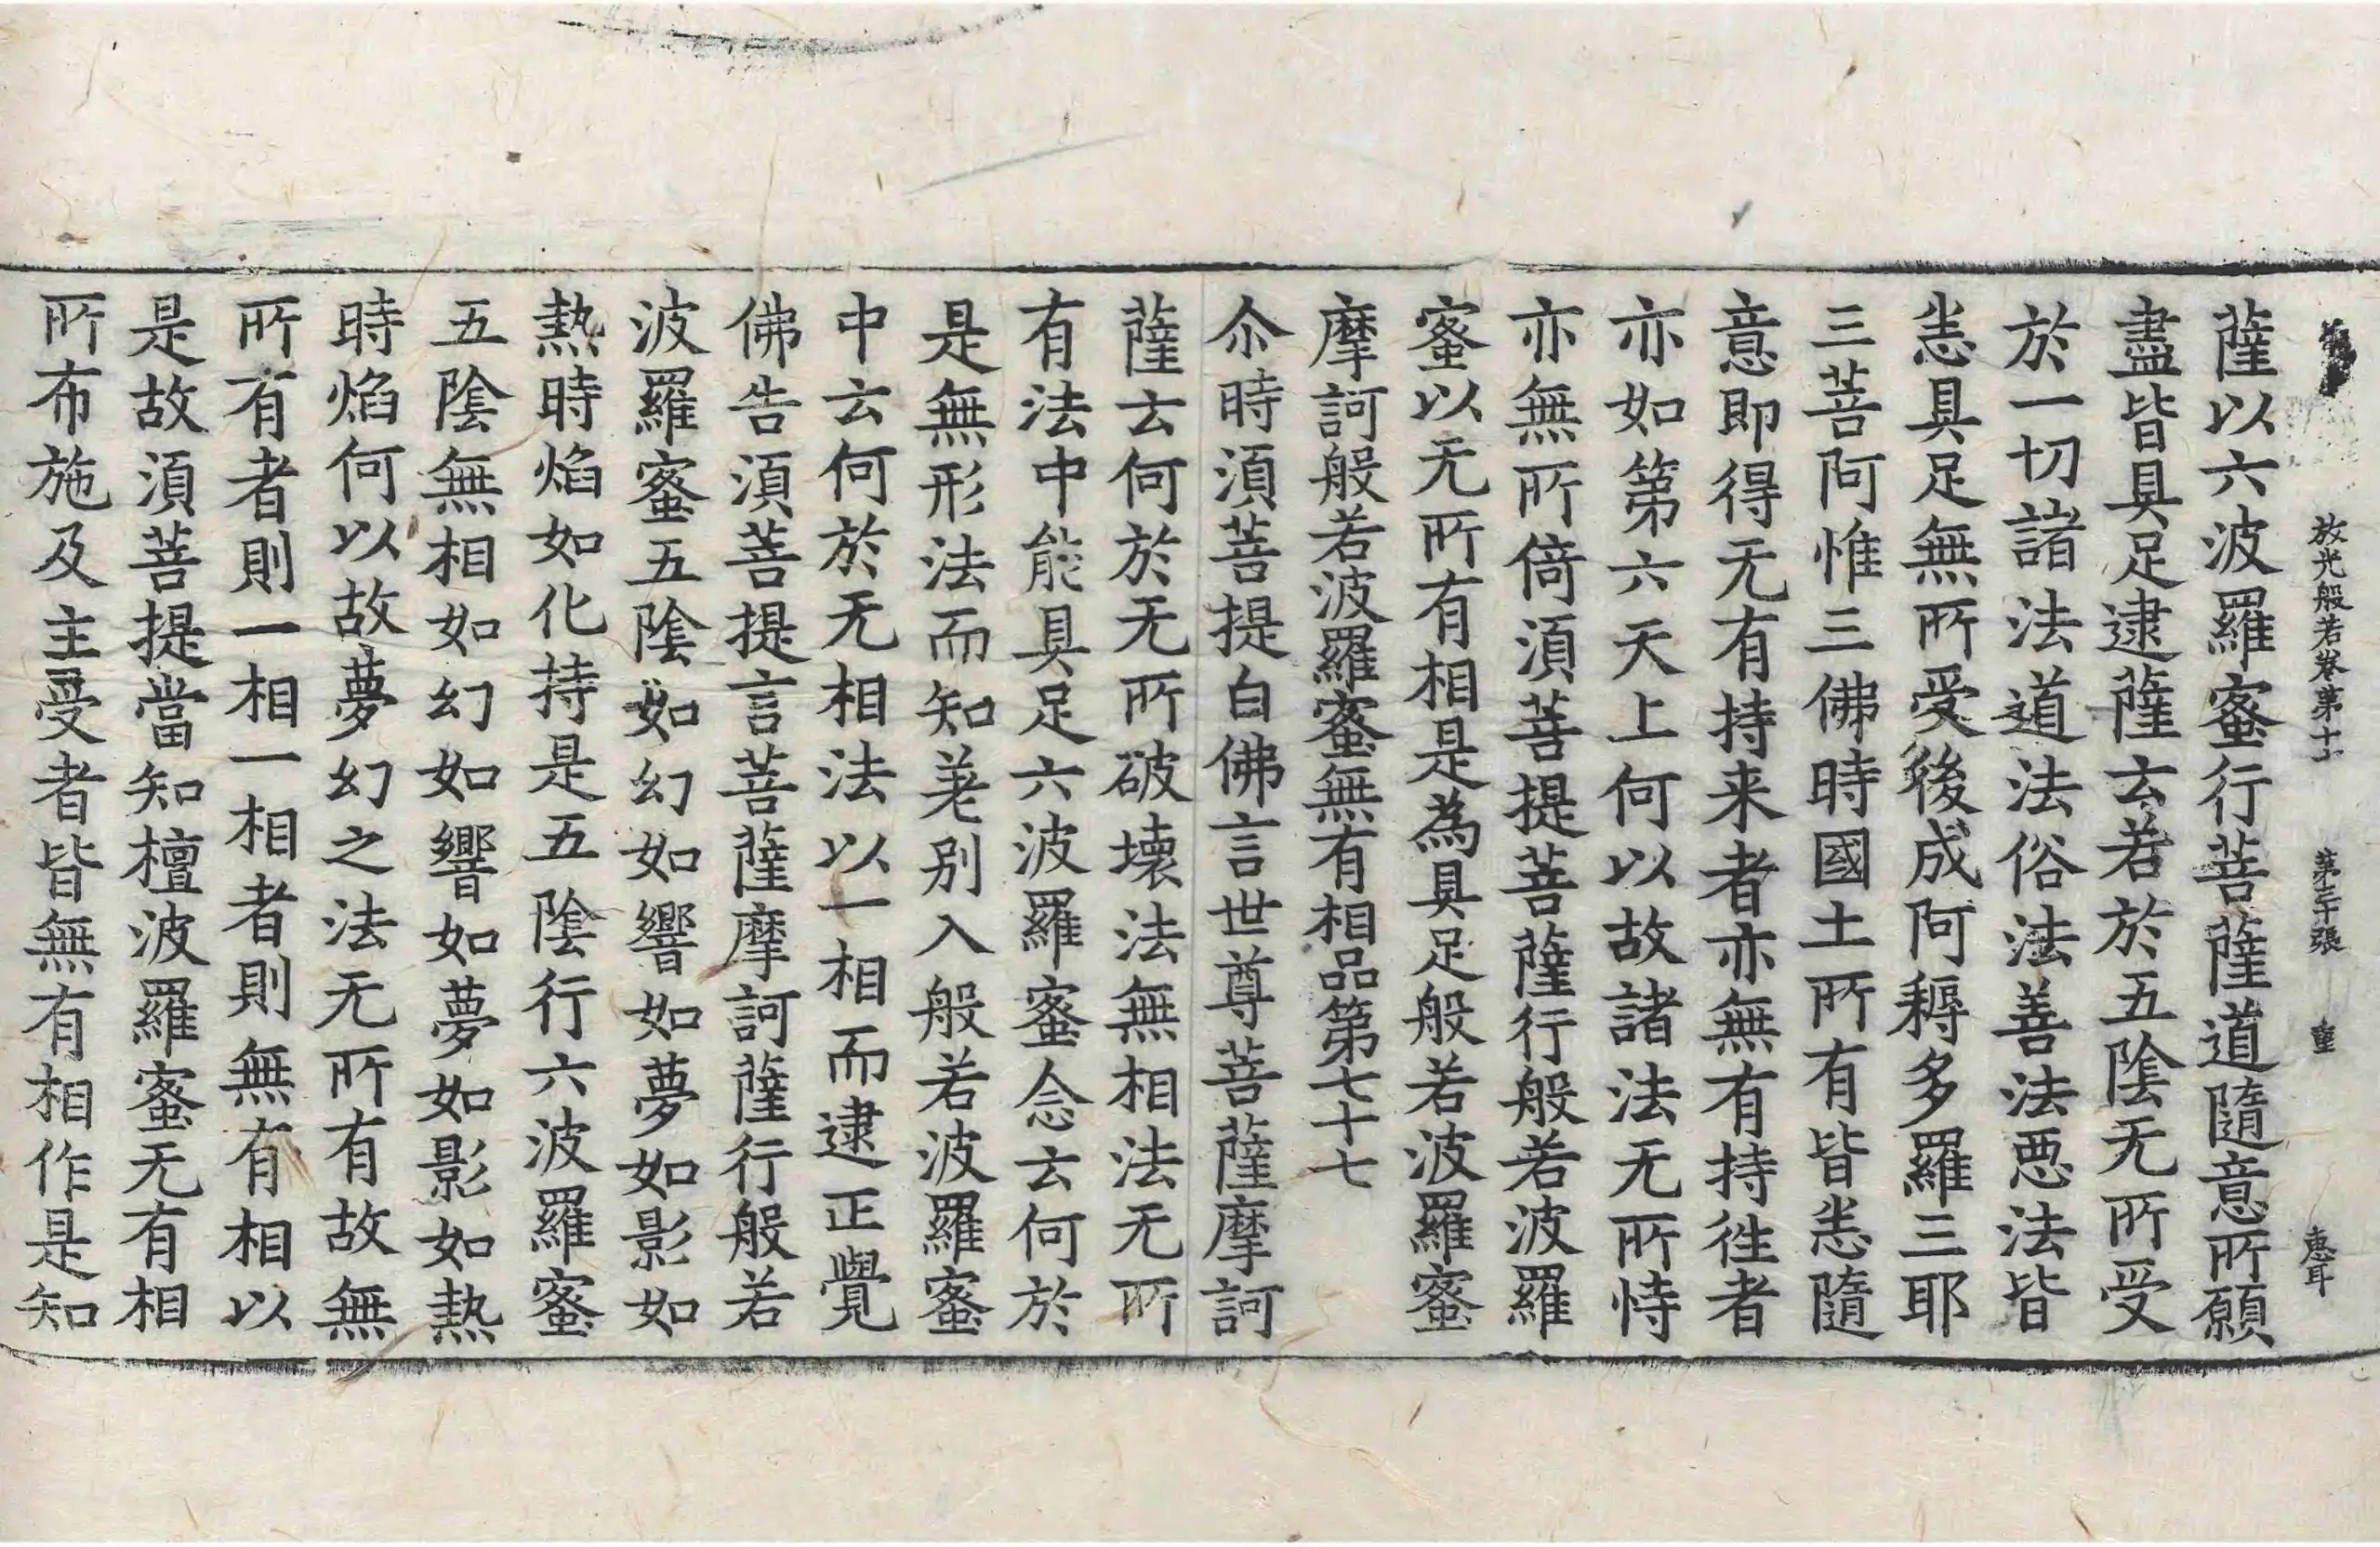 放光般若卷第十七 第三十張 重 惠耳
薩以六波羅蜜行菩薩道隨意所願
盡皆具足逮薩云若於五陰无所受
於一切諸法道法俗法善法悪法皆
悉具足無所受後成阿耨多羅三耶
三菩阿惟三佛時國土所有皆悉隨
意即得无有持来者亦無有持徃者
亦如第六天上何以故諸法无所恃
亦無所倚湏菩提菩薩行般若波羅
蜜以无所有相是為具足般若波羅蜜
摩訶般若波羅蜜無有相品第七十七
尒時湏菩提白佛言世尊菩薩摩訶
薩云何於无所破壊法無相法无所
有法中能具足六波羅蜜念云何於
是無形法而知差别入般若波羅蜜
中云何於无相法以一相而逮正覺
佛告湏菩提言菩薩摩訶薩行般若
波羅蜜五陰如幻如響如夢如影如
熱時焰如化持是五陰行六波羅蜜
五陰無相如幻如響如夢如影如熱
時焰何以故夢幻之法无所有故無
所有者則一相一相者則無有相以
是故湏菩提當知檀波羅蜜无有相
所布施及主受者皆無有相作是知